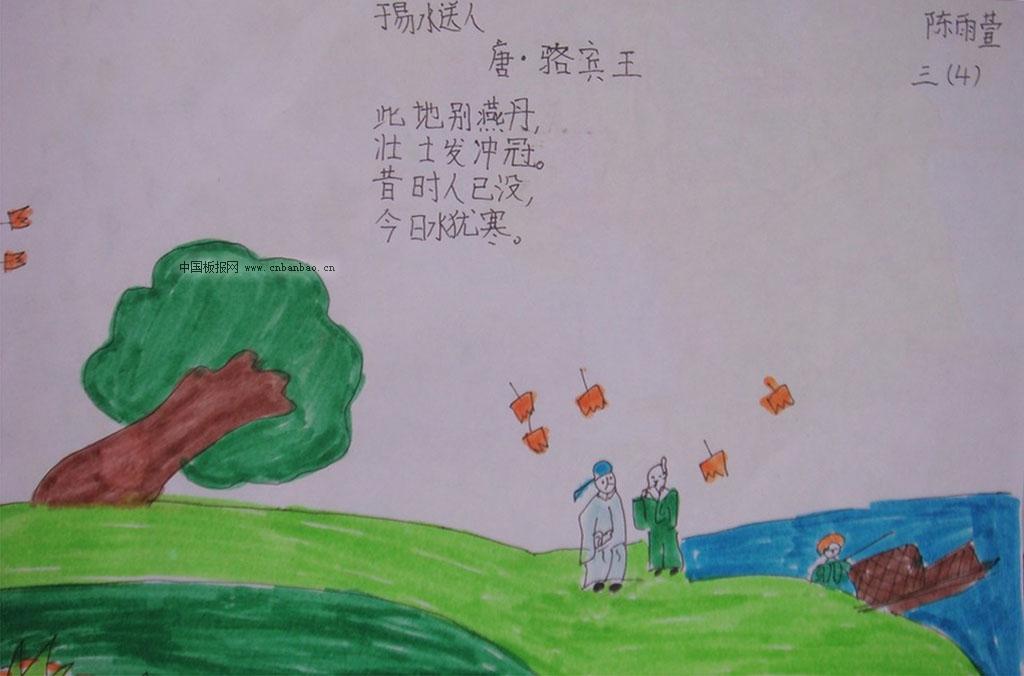 于易水送人
唐·骆宾王
陈雨萱
三(4)
此地别燕丹,
壮士发冲冠。
昔时人已没,
今日水犹寒。
中国板报网 www.cnbanbao.cn